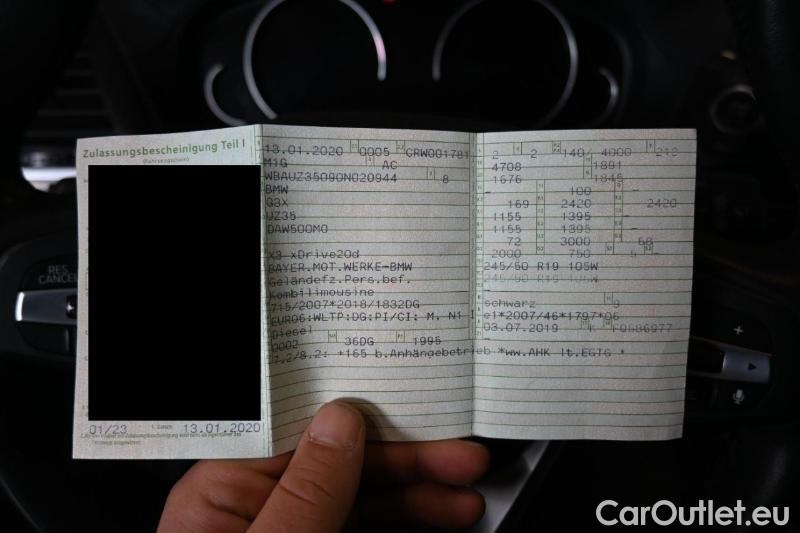 Zulassungsbescheinigung Teil I
(Fahrzeugschein)
01/23 13.01.2020
13.01.2020 0005 CRW001781
M1G AC
WBAUZ35090N020944 8
BMW
G3X
UZ35
DAW500M0
X3 xDrive20d
BAYER.MOT.WERKE-BMW
Geländefz.Pers.bef.
Kombilimousine
715/2007*2018/1832DG
EURO6:WLTP:DG:PI/CI: M, N1 I
Diesel
0002 36DG 1995
7.2/8.2: *165 b.Anhängebetrieb *ww.AHK lt.EGTG *
2 2 140/ 4000 212
4708 1891
1676 1845
- 100 -
169 2420 2420
1155 1395 -
1155 1395 -
72 3000 68
2000 750 5 -
245/50 R19 105W
245/50 R19 105W
schwarz 9
e1*2007/46*1797*06
03.07.2019 K
RES
CANCEL
+
-
CarOutlet.eu